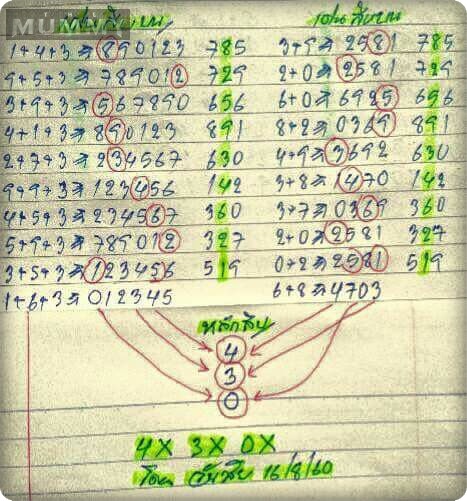 MUMVA
เด่นสิบบน เด่นสิบบน
1+4+3⇒890123 785 3+9⇒2581 785
9+5+3⇒789012 729 2+0⇒2581 729
3+9+3⇒567890 656 6+0⇒6925 656
4+1+3⇒890123 891 8+2⇒0369 891
2+7+3⇒234567 630 4+9⇒3692 630
9+9+3⇒123456 142 3+8⇒1470 142
4+5+3⇒234567 360 3+7⇒0369 360
5+9+3⇒789012 327 2+0⇒2581 327
3+5+3⇒123456 519 0+2⇒2581 519
1+6+3⇒012345 6+8⇒4703
หลักสิบ
4
3
0
4X 3X 0X
16/8/60